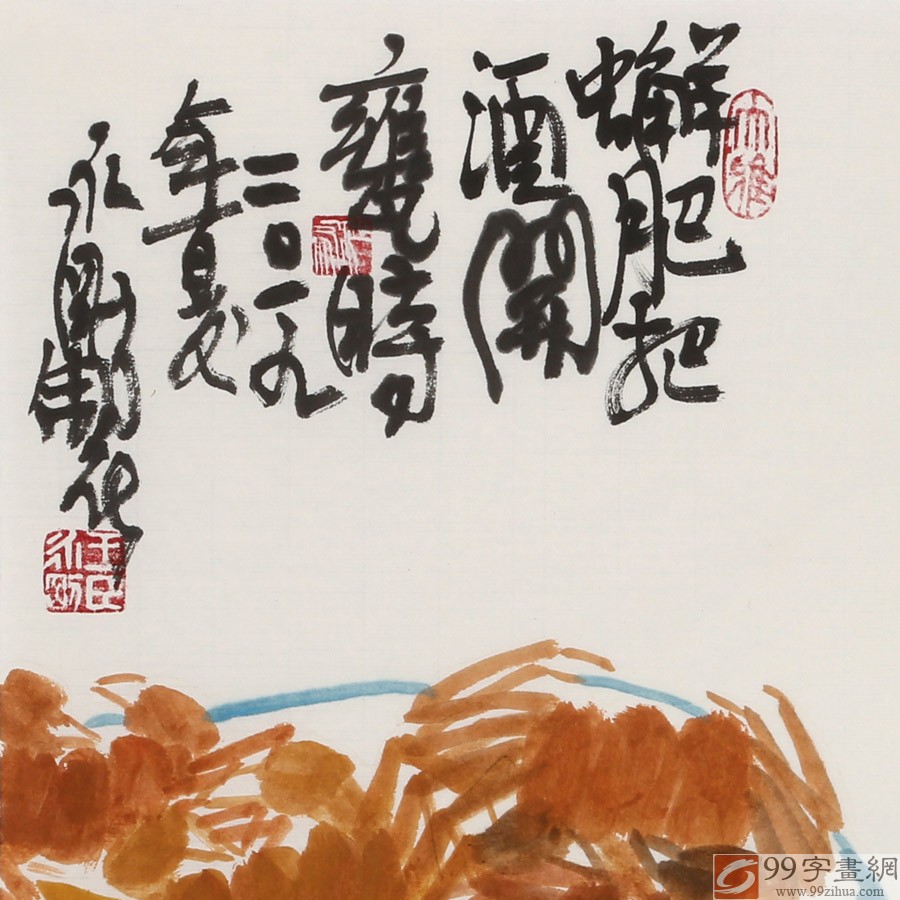 大雅
蠏肥把
酒開
甕時
二〇一九
年夏
永剛
99字畫網
www.99zihua.com